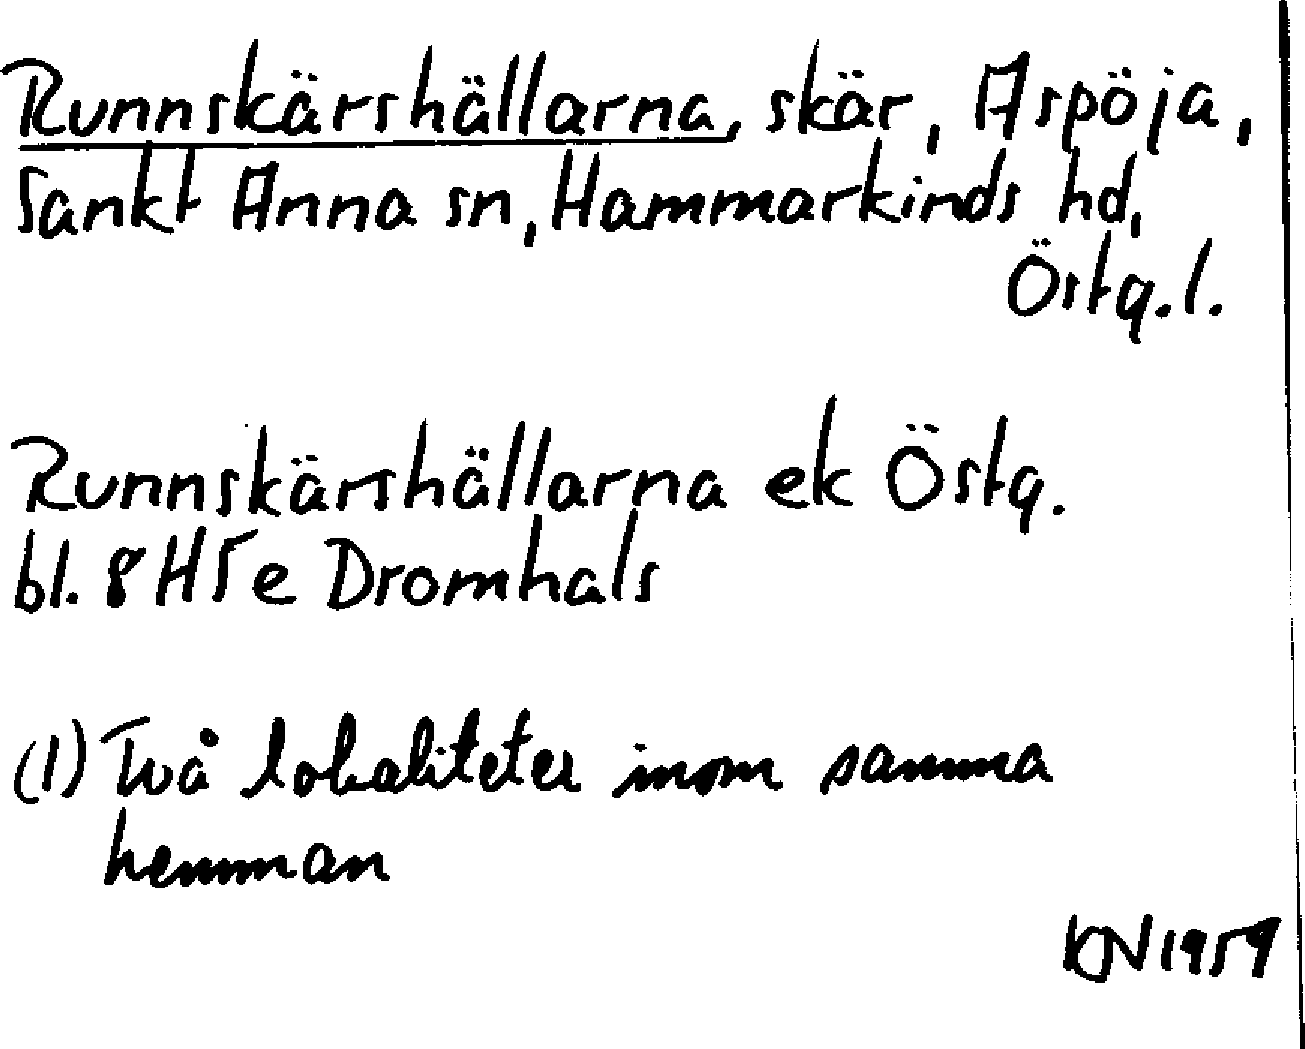 Runnskärshällarna, skär, Aspöja,
Sankt Anna sn, Hammarkinds hd,
Östg.l.
Runnskärshällarna ek Östg.
bl. 8H5e Dromhals
(1) Två lokaliteter inom samma
hemman
KN 1959